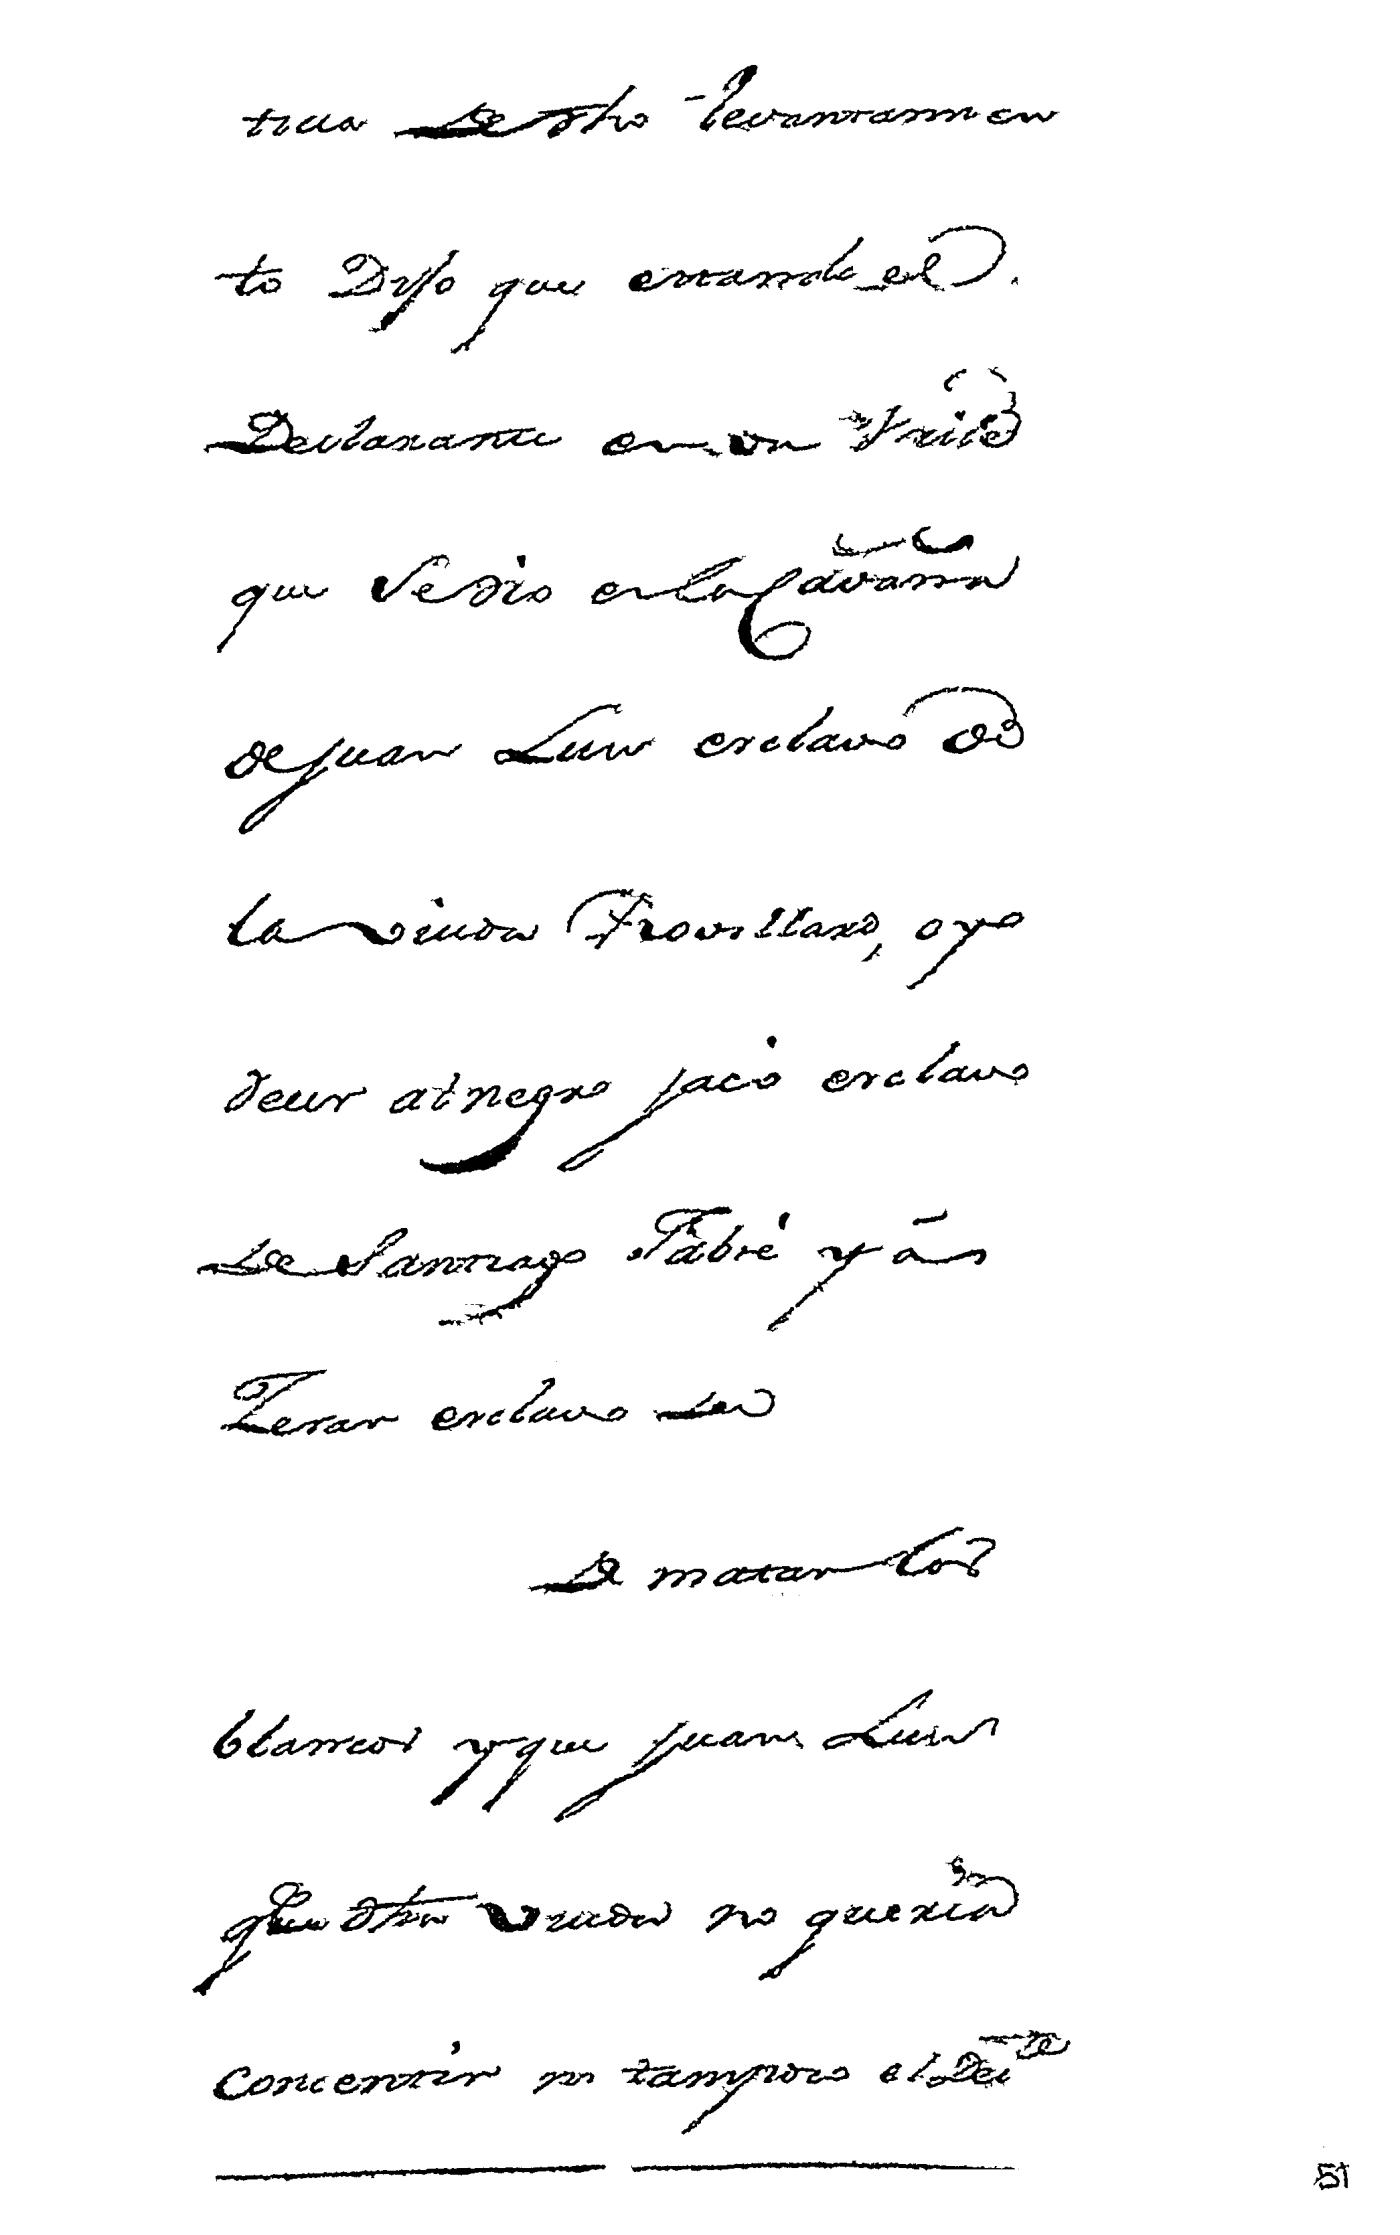 ticia de dho levantamien
to Dijo que estando el
Declarante en un Vaile
que Se dio en la Cavaña
de Juan Luis esclavo de
la viuda Trovillard, oyo
decir al negro Jacó esclavo
de Santiago Fabré y á
Zesar esclavo de
de matar los
blancos y que Juan Luis
que dha viuda no queria
Concentir ni tampoco el Decte
51